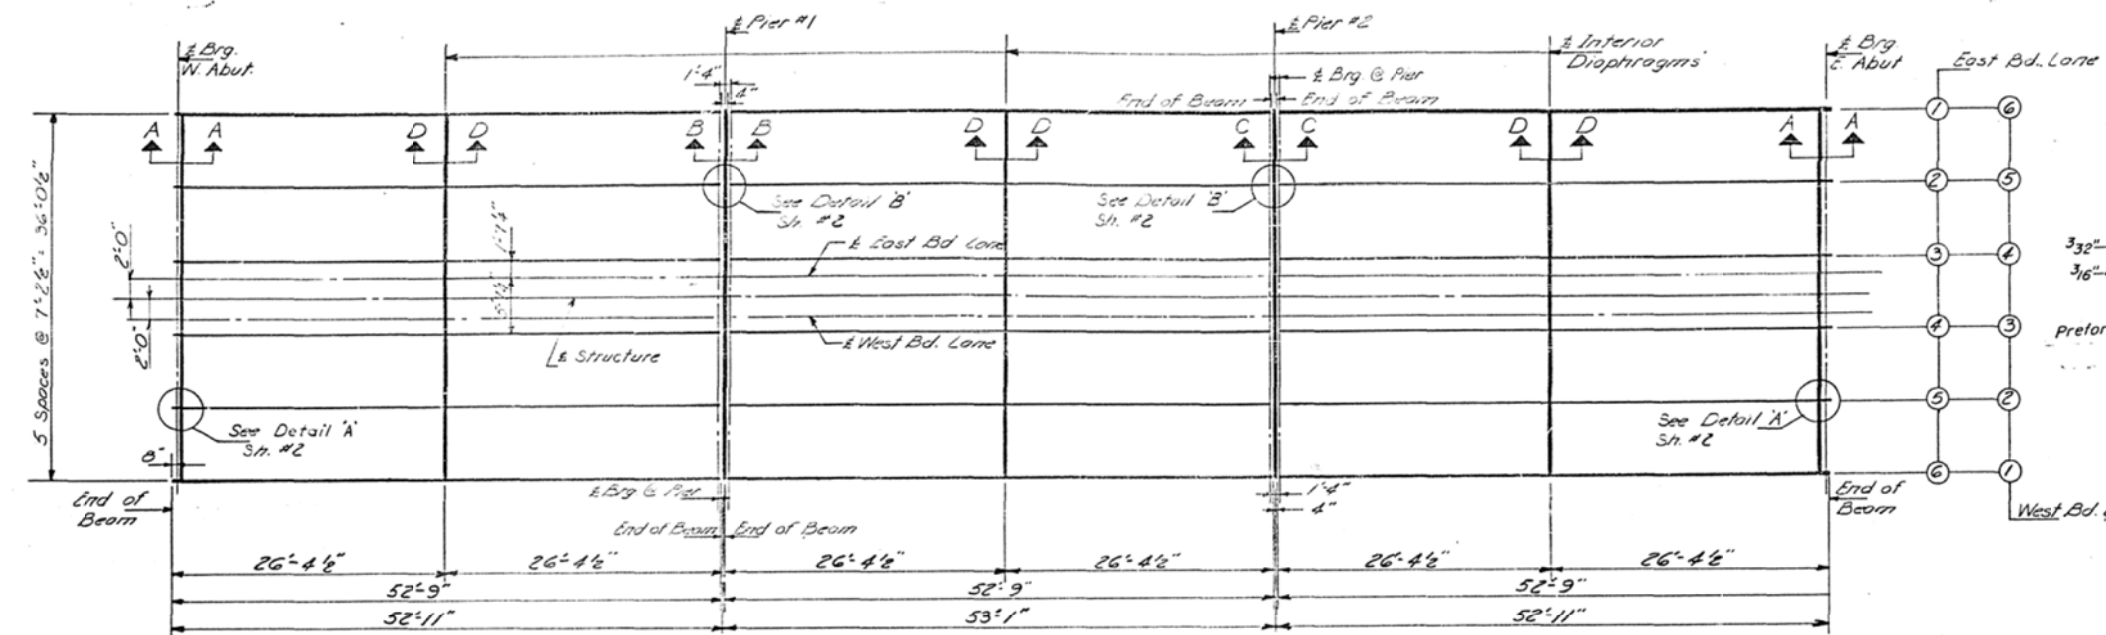 ℄ Pier #1
℄ Pier #2
℄ Brg.
W. Abut.
℄ Interior
Diaphragms
℄ Brg.
E. Abut
East Bd. Lane
1'-4"
4"
℄ Brg. @ Pier
End of Beam
End of Beam
A A D D B B D D C C D D A A
1 6
2 5
3 4
4 3
5 2
6 1
5 Spaces @ 7'-2½" = 36'-0½"
See Detail 'B'
Sh. #2
See Detail 'B'
Sh. #2
2'-0"
2'-0"
1'-7¼"
℄ East Bd Lane
℄ Structure
℄ West Bd. Lane
3/32"
3/16"
See Detail 'A'
Sh. #2
See Detail 'A'
Sh. #2
8"
End of
Beam
℄ Brg @ Pier
1'-4"
4"
End of
Beam
West Bd.
End of Beam
End of Beam
26'-4½" 26'-4½" 26'-4½" 26'-4½" 26'-4½" 26'-4½"
52'-9" 52'-9" 52'-9"
52'-11" 53'-1" 52'-11"